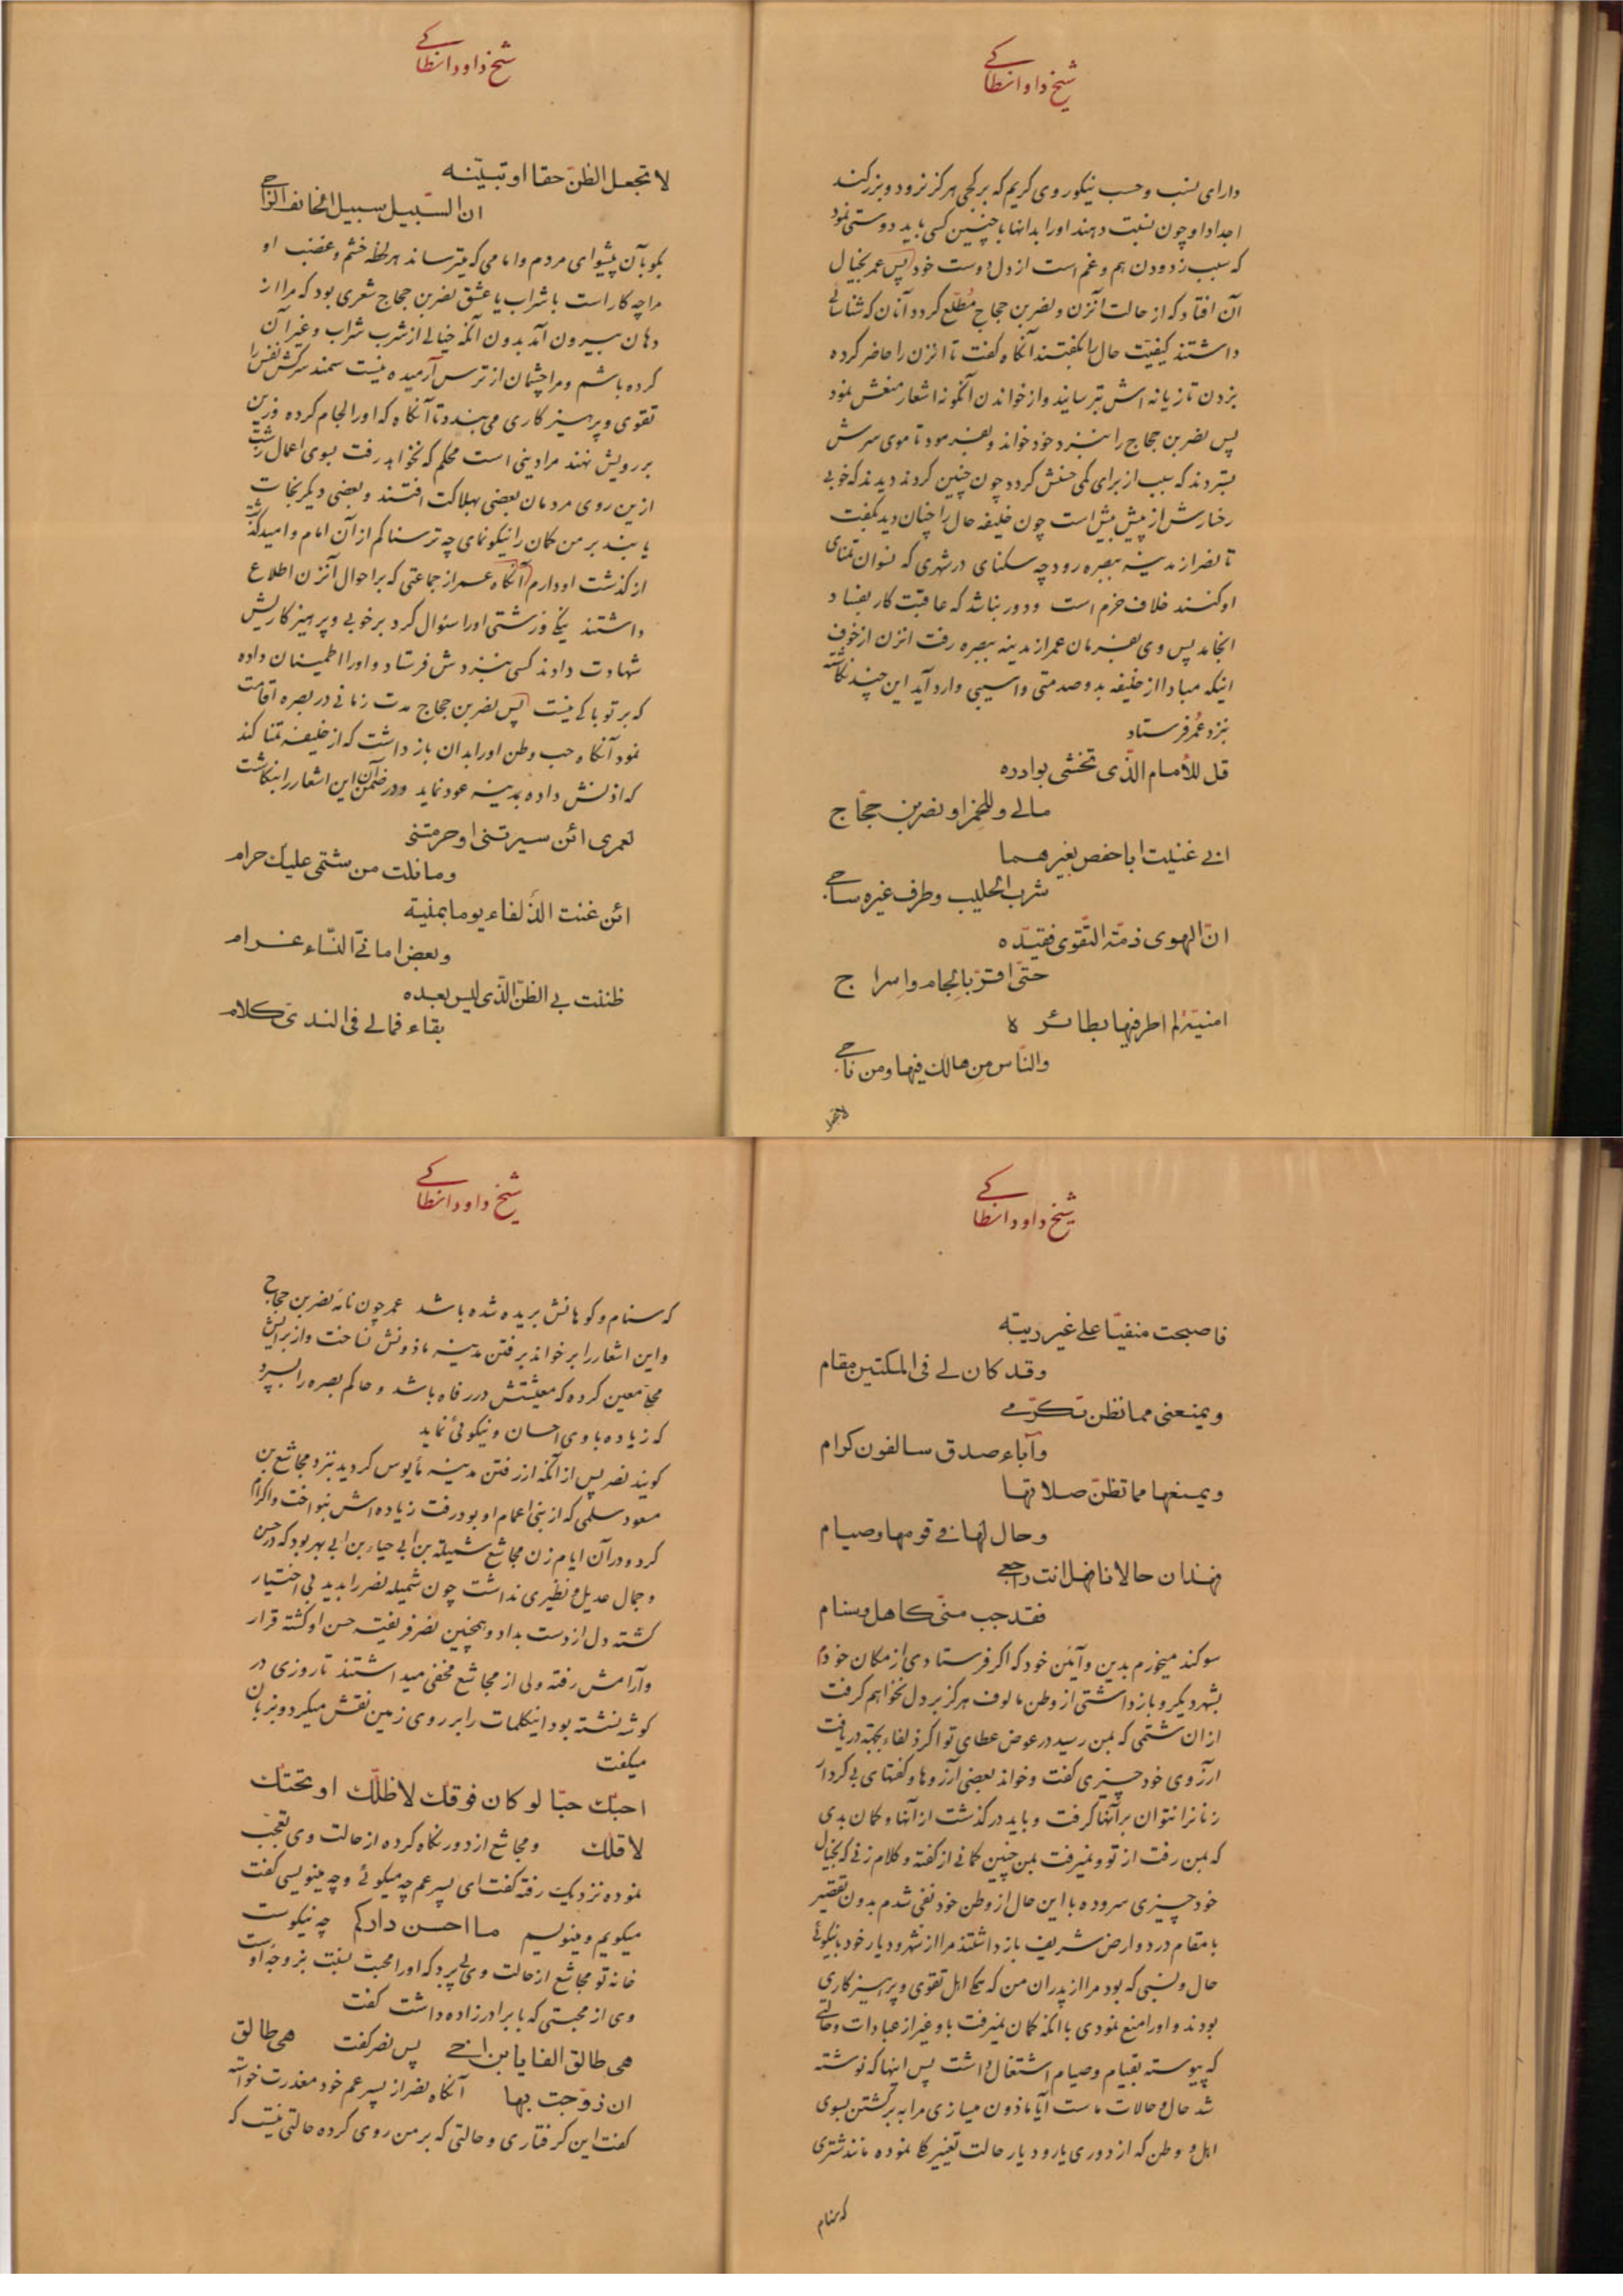 شیخ داود انطاکے
دارای نسب و حسب نیکو روی کریم که بر کجی هرگز نرود و بزرگند
اجداد او چون نسبت دهند او را بدانها با چنین کسی باید دوستی نمود
که سبب زدودن هم و غم است از دل دوست خود پس عمر بخیال
آن افتاد که از حالت آنزن و نصر بن حجاج مطّلع گردد آنان که شناسائی
داشتند کیفیّت حال را بگفتند آنگاه گفت تا انزن را حاضر کرده
بزدن تازیانه اش بترسانید و از خواندن آنگونه اشعار منعش نمود
پس نصر بن حجاج را بنزد خود خواند و بفرمود تا موی سرش
بستردند که سبب از برای کمی حسنش گردد چون چنین کردند دیدند که خوبی
رخسارش از پیش بیش است چون خلیفه حال را چنان دید بگفت
تا نصر از مدینه ببصره رود چه سکنای در شهری که نسوان تمنای
او کنند خلاف حزم است و دور نباشد که عاقبت کار بفساد
انجامد پس وی بفرمان عمر از مدینه ببصره رفت انزن از خوف
اینکه مبادا از خلیفه بدو صدمتی و اسیبی وارد آید این چند نگاشته
بنزد عمر فرستاد
قل للأمام الذّی تخشی بوادره
مالے وللخمر او نصر بن حجّاج
انی غنیت ابا حفص بغیرهما
شرب الحلیب و طرف غیره ساجے
انّ الهوی ذمّه التّقوی فقیّده
حتّی اقرّ بالجام و اسراج
امنیّة لم اطر فیها بطائره
والنّاس من هالك فیها و من ناجے
لاتجعل
شیخ داود انطاکے
لا تجعل الظنّ حقا او تبیّنه
ان السّبیل سبیل الخائف الرّاجے
بگو بآن پیشوای مردم و امامی که میترساند هر لحظه خشم و غضب او
مرا چه کار است با شراب یا عشق نصر بن حجاج شعری بود که مرا از
دهان بیرون آمد بدون آنکه خیالی از شرب شراب و غیر آن
کرده باشم و مرا چشمان از ترس آرمیده نیست سمند سرکش نفس را
تقوی و پرهیزکاری می بندد تا آنگاه که او را لجام کرده و زین
بر رویش نهند مرا دینی است محکم که نخواهد رفت بسوی اعمال زشت
ازین روی مردمان بعضی بهلاکت افتند و بعضی دیگر نجات
یابند بر من گمان را نیکو نمای چه ترسناکم از آن امام و امید گذشت
از گذشت او دارم آنگاه عمر از جماعتی که بر احوال آنزن اطلاع
داشتند نیکے و زشتی او را سئوال کرد بر خوبی و پرهیزکاریش
شهادت دادند کسی بنزدش فرستاد و او را اطمینان داده
که بر تو باکی نیست پس نصر بن حجاج مدت زمانی در بصره اقامت
نمود آنگاه حب وطن او را بدان باز داشت که از خلیفه تمنا کند
که اذنش داده بمدینه عود نماید و در ضمن آن این اشعار را بنگاشت
لعمری ائن سیرتنی او حرمتنی
وما نلت من شتمی علیك حرام
ائن غنت الذّلفاء یوما بمنیة
و بعض امانّی النّساء غرام
ظننت بی الظنّ الذّی لیس بعده
بقاء فمالے فی النّدیّ کلام
شیخ داود انطاکے
فاصبحت منفیّا علی غیر ریبة
وقد کان لے فی المکتین مقام
ویمنعنی مما تظن تکرّمے
وآباء صدق سالفون کرام
ویمنعها مما تظنّ صلاتها
وحال لها فی قومها وصیام
فهذان حالانا فهل انت راجعے
فقد جب منّی کاهل وسنام
سوگند میخورم بدین و آئین خود که اگر فرستادی از مکان خودم
بشهر دیگر و باز داشتی از وطن مالوف هرگز بر دل نخواهم گرفت
از ان شتمی که بمن رسید در عوض عطای تو اگر ذلفاء بجهة دریافت
آرزوی خود چیزی گفت و خواند بعضی آرزوها و گفتهای بی کردار
زنانرا نتوان بر آنها گرفت و باید در گذشت از آنها و گمان بدی
که بمن رفت از تو و نمیرفت بمن چنین گمانی از گفته و کلام زنی که بخیال
خود چیزی سروده با این حال از وطن خود نفی شدم بدون تقصیر
با مقام در دو ارض شریف باز داشتند مرا از شهر و دیار خود با نیکوئی
حال و نسبی که بود مرا از پدران من که همگی اهل تقوی و پرهیزکاری
بودند و او را منع نمودی با آنکه گمان نمیرفت باو غیر از عبادات و حالتی
که پیوسته بقیام و صیام اشتغال داشت پس اینها که نوشته
شد حال و حالات ماست آیا ماذون میسازی مرا به برگشتن بسوی
اهل و وطن که از دوری یار و دیار حالت تغییر کلی نموده مانند شتری
که سنام
شیخ داود انطاکے
که سنام و کوهانش بریده شده باشد عمر چون نامه نصر بن حجاج
و این اشعار را بر خواند بر فتن مدینه ماذونش نساخت و از برایش
محلی معین کرده که معیشتش در رفاه باشد و حاکم بصره را بسپرد
که زیاده با وی احسان و نیکوئی نماید
گویند نصر پس از آنکه از رفتن مدینه مأیوس گردید بنزد مجاشع بن
مسعود سلمی که از بنی اعمام او بود رفت زیاده اش بنواخت و اکرام
کرد و در آن ایام زن مجاشع شمیله بن ابی حیاء بن ابی بهر بود که در حسن
و جمال عدیل و نظیری نداشت چون شمیله نصر را بدید بی اختیار
گشته دل از دست بداد و همچنین نصر فریفته حسن او گشته قرار
و آرامش رفته ولی از مجاشع مخفی میداشتند تا روزی در
گوشه نشسته بود اینکلمات را بر روی زمین نقش میکرد و بزبان
میگفت
احبّك حبّا لو کان فوقك لاظلّك او تحتك
لاقلّك و مجاشع از دور نگاه کرده از حالت وی تعجّب
نموده نزدیك رفته گفت ای پسر عم چه میگوئی و چه مینویسی گفت
میگویم و مینویسم ما احسن دارکم چه نیکوست
خانه تو مجاشع از حالت وی پی برد که او را محبت نسبت بزوجه اوست
وی از محبتی که با برادرزاده داشت گفت
هی طالق الفا یا بن اخے پس نصر گفت هی طالق
ان زوّجت بها آنگاه نصر از پسر عم خود معذرت خواسته
گفت این گرفتاری و حالتی که بر من روی کرده حالتی نیست که